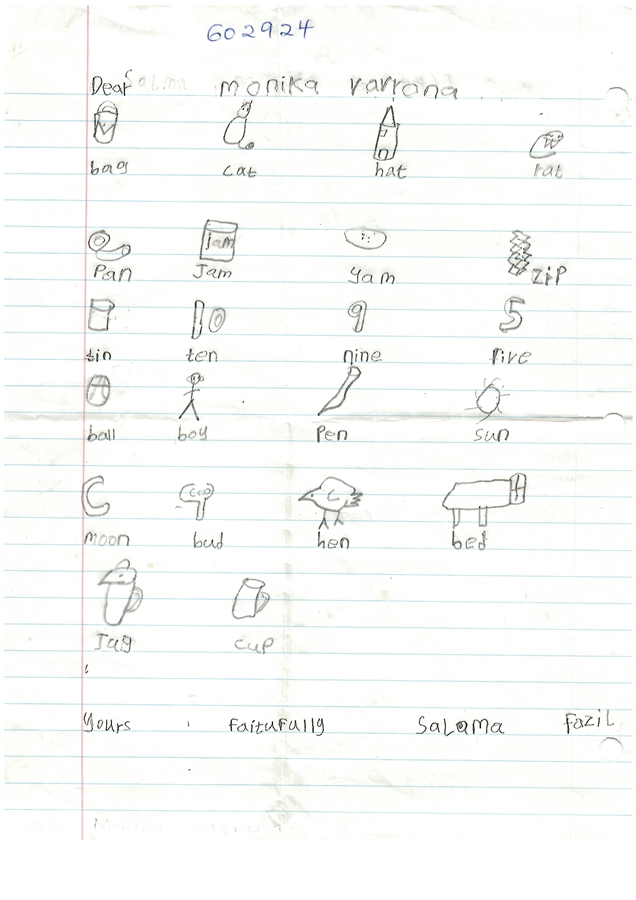 602924
Dear Salma monika varrana
bag cat hat rat
Jam
Pan Jam yam ZiP
10 9 5
tin ten nine five
ball boy Pen sun
moon bud hen bed
Jag cup
yours faitufully SaLama FaziL